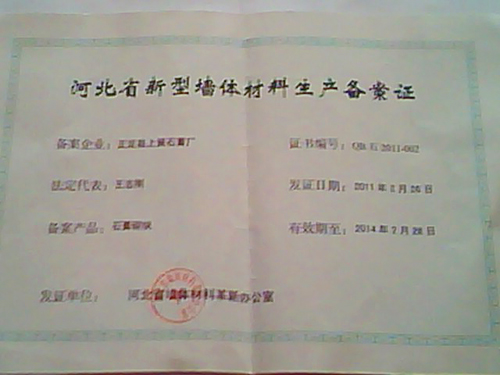 河北省新型墙体材料生产备案证
备案企业：正定县上曲石膏厂
证书编号：QB石2011-002
法定代表：王志刚
发证日期：2011年 月 日
备案产品：石膏
有效期至：2014年2月28日
发证单位：河北省墙体材料革新办公室